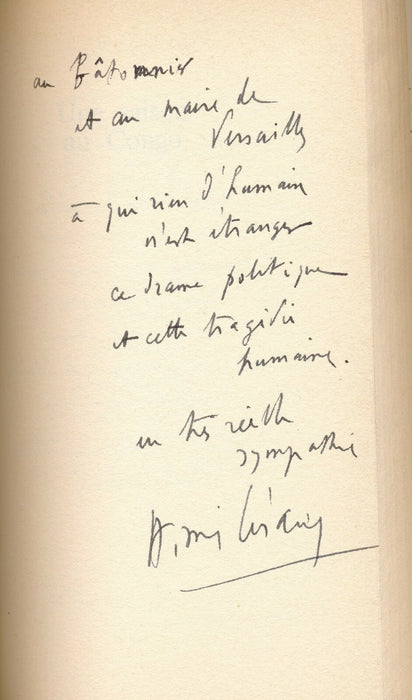 au Bâtonnier
et au maire de
Versailles
à qui rien d'humain
n'est étranger
ce drame politique
et cette tragédie
humaine.
en très réelle
sympathie
Aimé Césaire